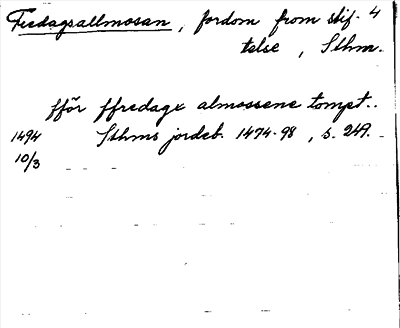 Fredagsallmosan, fordom from stif- 4
telse, Sthm.
fför ffredags almossene tompt..
1494 Sthms jordeb. 1474-98, s. 249.
10/3